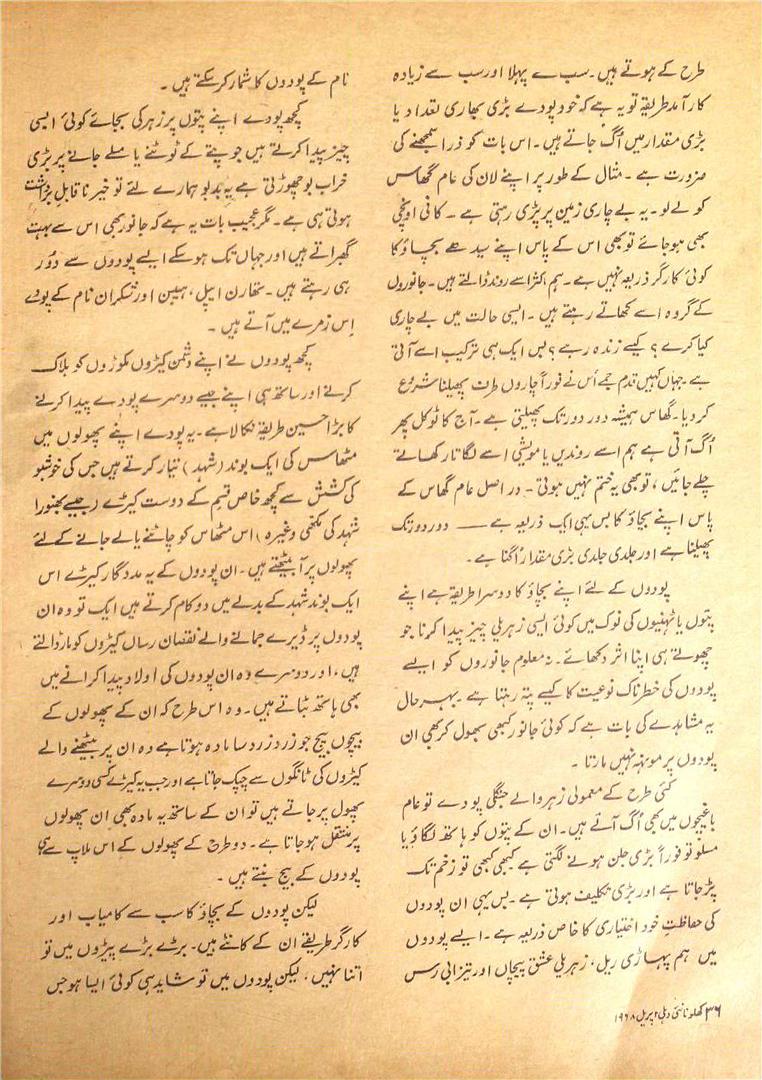 طرح کے ہوتے ہیں۔ سب سے پہلا اور سب سے زیادہ
کارآمد طریقہ تو یہ ہے کہ خود پودے بڑی بھاری تعداد یا
بڑی مقدار میں اُگ جاتے ہیں۔ اس بات کو ذرا سمجھنے کی
ضرورت ہے۔ مثال کے طور پر اپنے لان کی عام گھاس
کو لے لو۔ یہ بے چاری زمین پر پڑی رہتی ہے۔ کافی اونچی
بھی ہو جائے تو بھی اس کے پاس اپنے سیدھے بچاؤ کا
کوئی کارگر ذریعہ نہیں ہے۔ ہم اکثر اسے روند ڈالتے ہیں۔ جانوروں
کے گروہ اسے کھاتے رہتے ہیں۔ ایسی حالت میں بے چاری
کیا کرے؟ کیسے زندہ رہے؟ بس ایک ہی ترکیب اسے آتی
ہے۔ جہاں کہیں قدم جمے اُس نے فوراً چاروں طرف پھیلنا شروع
کر دیا۔ گھاس ہمیشہ دور دور تک پھیلتی ہے۔ آج کاٹو کل پھر
اُگ آتی ہے ہم اسے روندیں یا مویشی اسے لگاتار کھاتے
چلے جائیں، تو بھی یہ ختم نہیں ہوتی۔ دراصل عام گھاس کے
پاس اپنے بچاؤ کا بس یہی ایک ذریعہ ہے —— دور دور تک
پھیلنا ہے اور جلدی جلدی بڑی مقدار اُگنا ہے۔
پودوں کے لئے اپنے بچاؤ کا دوسرا طریقہ ہے اپنے
پتوں یا ٹہنیوں کی نوک میں کوئی ایسی زہریلی چیز پیدا کرنا جو
چھوتے ہی اپنا اثر دکھائے۔ نہ معلوم جانوروں کو ایسے
پودوں کی خطرناک نوعیت کا کیسے پتہ رہتا ہے۔ بہر حال
یہ مشاہدے کی بات ہے کہ کوئی جانور کبھی بھول کر بھی ان
پودوں پر مونہہ نہیں مارتا۔
کئی طرح کے معمولی زہر والے جنگلی پودے تو عام
باغیچوں میں بھی اُگ آتے ہیں۔ ان کے پتوں کو ہاتھ لگاؤ یا
مسلو تو فوراً بڑی جلن ہونے لگتی ہے کبھی کبھی تو زخم تک
پڑ جاتا ہے اور بڑی تکلیف ہوتی ہے۔ بس یہی ان پودوں
کی حفاظتِ خود اختیاری کا خاص ذریعہ ہے۔ ایسے پودوں
میں ہم پہاڑی ریل، زہریلی عشق پیچاں اور تیزابی رس
نام کے پودوں کا شمار کر سکتے ہیں۔
کچھ پودے اپنے پتوں پر زہر کی بجائے کوئی ایسی
چیز پیدا کرتے ہیں جو پتے کے ٹوٹنے یا مسلے جانے پر بڑی
خراب بو چھوڑتی ہے یہ بدبو ہمارے لئے تو خیر ناقابلِ برداشت
ہوتی ہی ہے۔ مگر عجیب بات یہ ہے کہ جانور بھی اس سے بہت
گھبراتے ہیں اور جہاں تک ہو سکے ایسے پودوں سے دُور
ہی رہتے ہیں۔ تھارن ایپل، ہیبن اور تسکران نام کے پودے
اِس زمرے میں آتے ہیں۔
کچھ پودوں نے اپنے دشمن کیڑوں مکوڑوں کو ہلاک
کرنے اور ساتھ ہی اپنے جیسے دوسرے پودے پیدا کرنے
کا بڑا حسین طریقہ نکالا ہے۔ یہ پودے اپنے پھولوں میں
مٹھاس کی ایک بوند (شہد) تیار کرتے ہیں جس کی خوشبو
کی کشش سے کچھ خاص قسم کے دوست کیڑے (جیسے بھنورا
شہد کی مکھی وغیرہ) اس مٹھاس کو چاٹنے یا لے جانے کے لئے
پھولوں پر آ بیٹھتے ہیں۔ ان پودوں کے یہ مددگار کیڑے اس
ایک بوند شہد کے بدلے میں دو کام کرتے ہیں ایک تو وہ ان
پودوں پر ڈیرے جمانے والے نقصان رساں کیڑوں کو مار ڈالتے
ہیں، اور دوسرے وہ ان پودوں کی اولاد پیدا کرانے میں
بھی ہاتھ بٹاتے ہیں۔ وہ اس طرح کہ ان کے پھولوں کے
بیچوں بیچ جو زرد زرد سا مادہ ہوتا ہے وہ ان پر بیٹھنے والے
کیڑوں کی ٹانگوں سے چپک جاتا ہے اور جب یہ کیڑے کسی دوسرے
پھول پر جاتے ہیں تو ان کے ساتھ یہ مادہ بھی ان پھولوں
پر منتقل ہو جاتا ہے۔ دو طرح کے پھولوں کے اس ملاپ سے ہی
پودوں کے بیج بنتے ہیں۔
لیکن پودوں کے بچاؤ کا سب سے کامیاب اور
کارگر طریقے ان کے کانٹے ہیں۔ بڑے بڑے پیڑوں میں تو
اتنا نہیں، لیکن پودوں میں تو شاید ہی کوئی ایسا ہو جس
۳۶ کھلونا نئی دہلی اپریل ۱۹۶۸